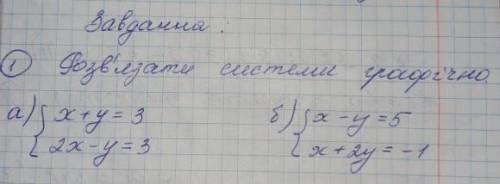 Завдання:
① Розв'язати системи графічно.
а) { x+y=3 б) { x-y=5
2x-y=3 x+2y=-1